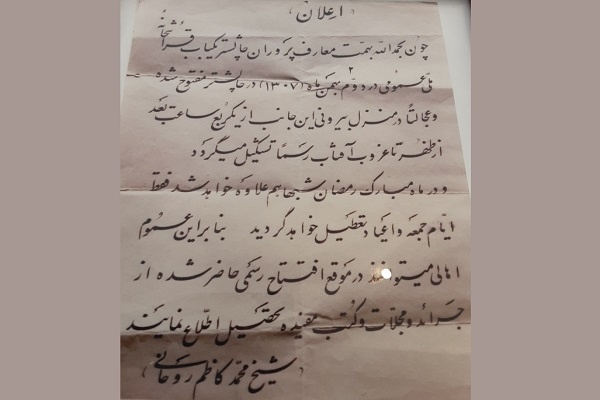 (اعلان)
چون بحمدالله بهمت معارف پروران چالشتر یکباب قرائتخانهٔ
ملی عمومی در دوم ۲ بهمن ماه (۱۳۰۷) در چالشتر مفتوح شده
و عجالتاً در منزل بیرونی این جانب از یکربع ساعت بعد
از ظهر تا غروب آفتاب رسماً تشکیل میگردد
و در ماه مبارک رمضان شبها هم علاوه خواهد شد فقط
ایام جمعه و اعیاد تعطیل خواهد گردید بنابراین عموم
اهالی میتوانند در موقع افتتاح رسمی حاضر شده از
جرائد و مجلات و کتب مفیده تحصیل اطلاع نمایند
(شیخ محمد کاظم روحانی)